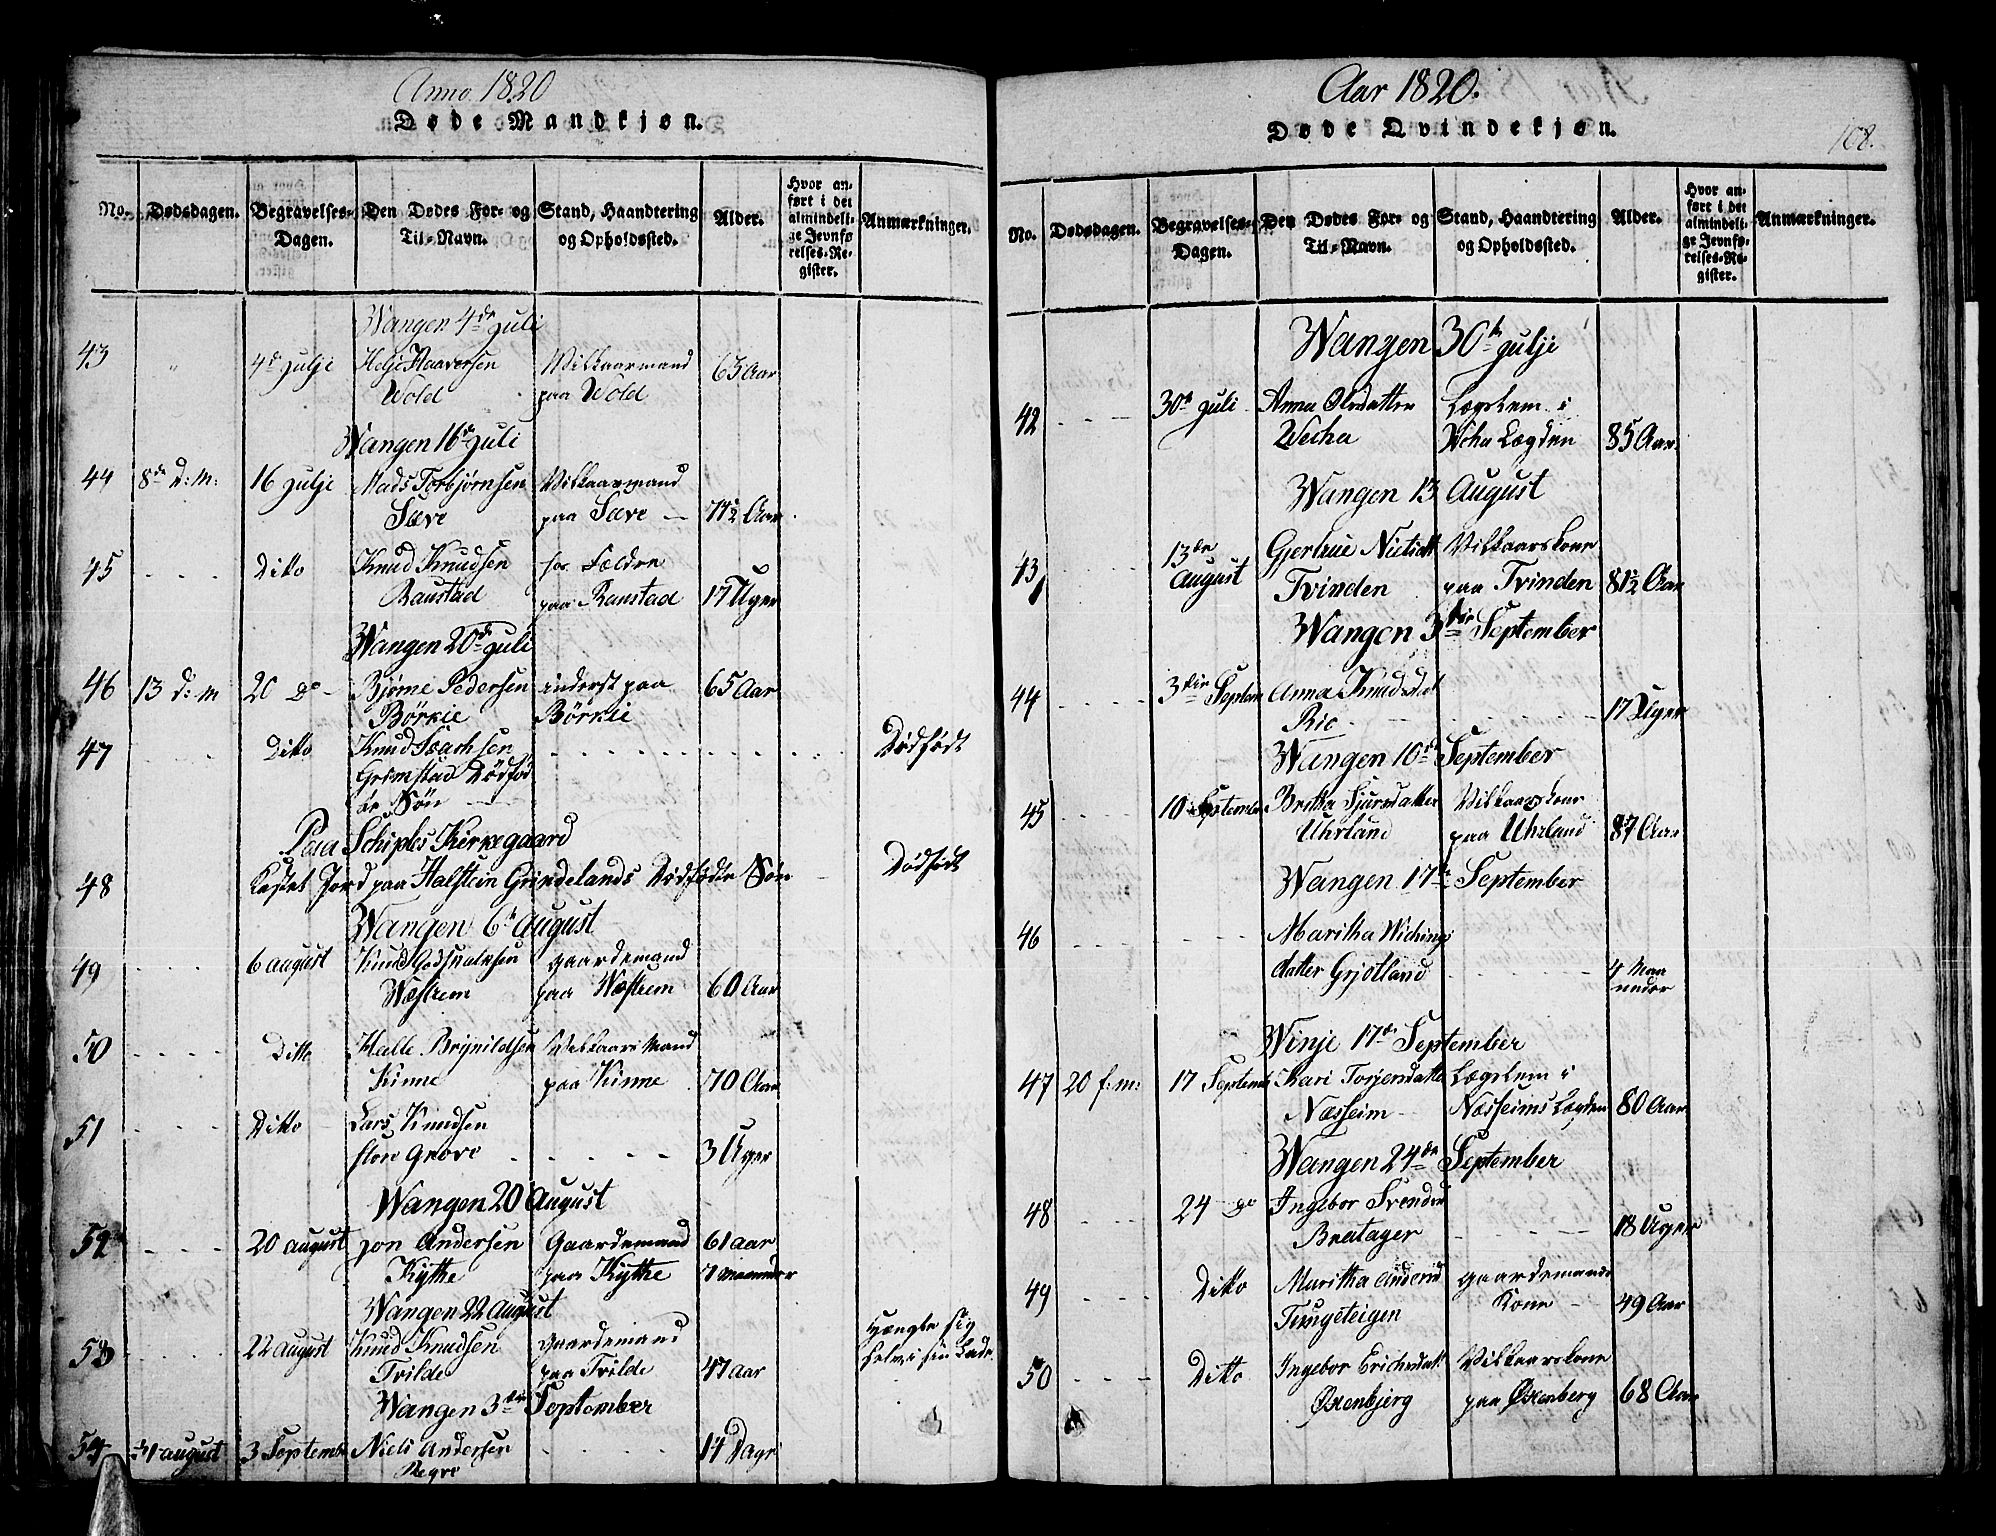 Anno 1820
Døde Mandkjøn.
No.
Dødsdagen.
Begravelses-
Dagen.
Den Dødes For- og
Til-Navn.
Stand, Haandtering
og Opholdssted.
Alder.
Hvor an-
ført i det
almindeli-
ge Jevnfø-
relses-Re-
gister.
Anmærkninger.
Wangen 4de Juli
43 4de Julje Helje Haaversen Vilkaarmand 63 Aar
Wold paa Wold
Wangen 16de Juli
44 8de D: M: 16 Julje Mads Torbjørnsen Vilkaarmand
Sæve paa Sæve 71½ Aar
45 Ditto Knud Knudsen
Raustad paa Raustad 17 Uger
Wangen 20de Juli
46 13 d: m 20 do Bjørne Pedersen inderst paa 65 Aar
Börkie Börkie
47 Ditto Knud Isachsen Dödfödt
Grimstad Dödfød
Søn
Paa Schiples Kirkegaard
48 Kastet Jord paa Halstein Grindelands Dödfödte Søn Dödfödt
Wangen 6te August
49 6 august Knud Godskalksen gaardemand
Wæstrem paa Wæstrem 60 Aar
50 Ditto Halle Brynildsen Vilkaars Mand
Kinne paa Kinne 70 Aar
51 Ditto Lars Knudsen
Grove 3 Uger
Wangen 20 August
52 20 august Jon Andersen Gaardemand 61 aar
Kythe paa Kythe 7 maaneder
Wangen 22 August
53 22 august Knud Knudsen gaardemand hængte sig
Tvilde paa Tvilde 47 aar selv i sin Lade
Wangen 3die September
54 31 august 3 Septembr Niels Andersen 14 Dage
Regve
Aar 1820.
Døde Qvindekjøn.
108.
No.
Dødsdagen.
Begravelses-
Dagen.
Den Dødes For- og
Til-Navn.
Stand, Haandtering
og Opholdssted.
Alder.
Hvor an-
ført i det
almindeli-
ge Jevnfø-
relses-Re-
gister.
Anmærkninger.
Wangen 30te Julje
42 30te Juli Anna Olsdatter Lægslem i
Wecha Lægden 85 Aar
Wangen 13 August
43 13de Gjertrue Vilkaarskone
August Tvinden paa Tvinden 81½ Aar
Wangen 3die September
44 3die Septem Anna Knudsdat
17 Uger
Wangen 10de September
45 10 September Britha Sjursdatter Vilkaarskone
Uhrland paa Uhrland 87 Aar
Wangen 17de September
46 Maritha Wichings
datter Grjotland 4 Maa
neder
Winje 17de September
47 20 f: m: 17 Septemb Kari Torjersdatter Lægslem i
Næsheim Næsheims Lægden 80 Aar
Wangen 24de September
48 24 do Ingebor Svends
Bratager 18 Uger
49 Ditto Maritha Andersd gaardemands
Tungeteigen Kone 49 Aar
50 Ditto Ingebor Erichsdatt Vilkaarskone
Øxenbjerg paa Øxenberg 68 Aar